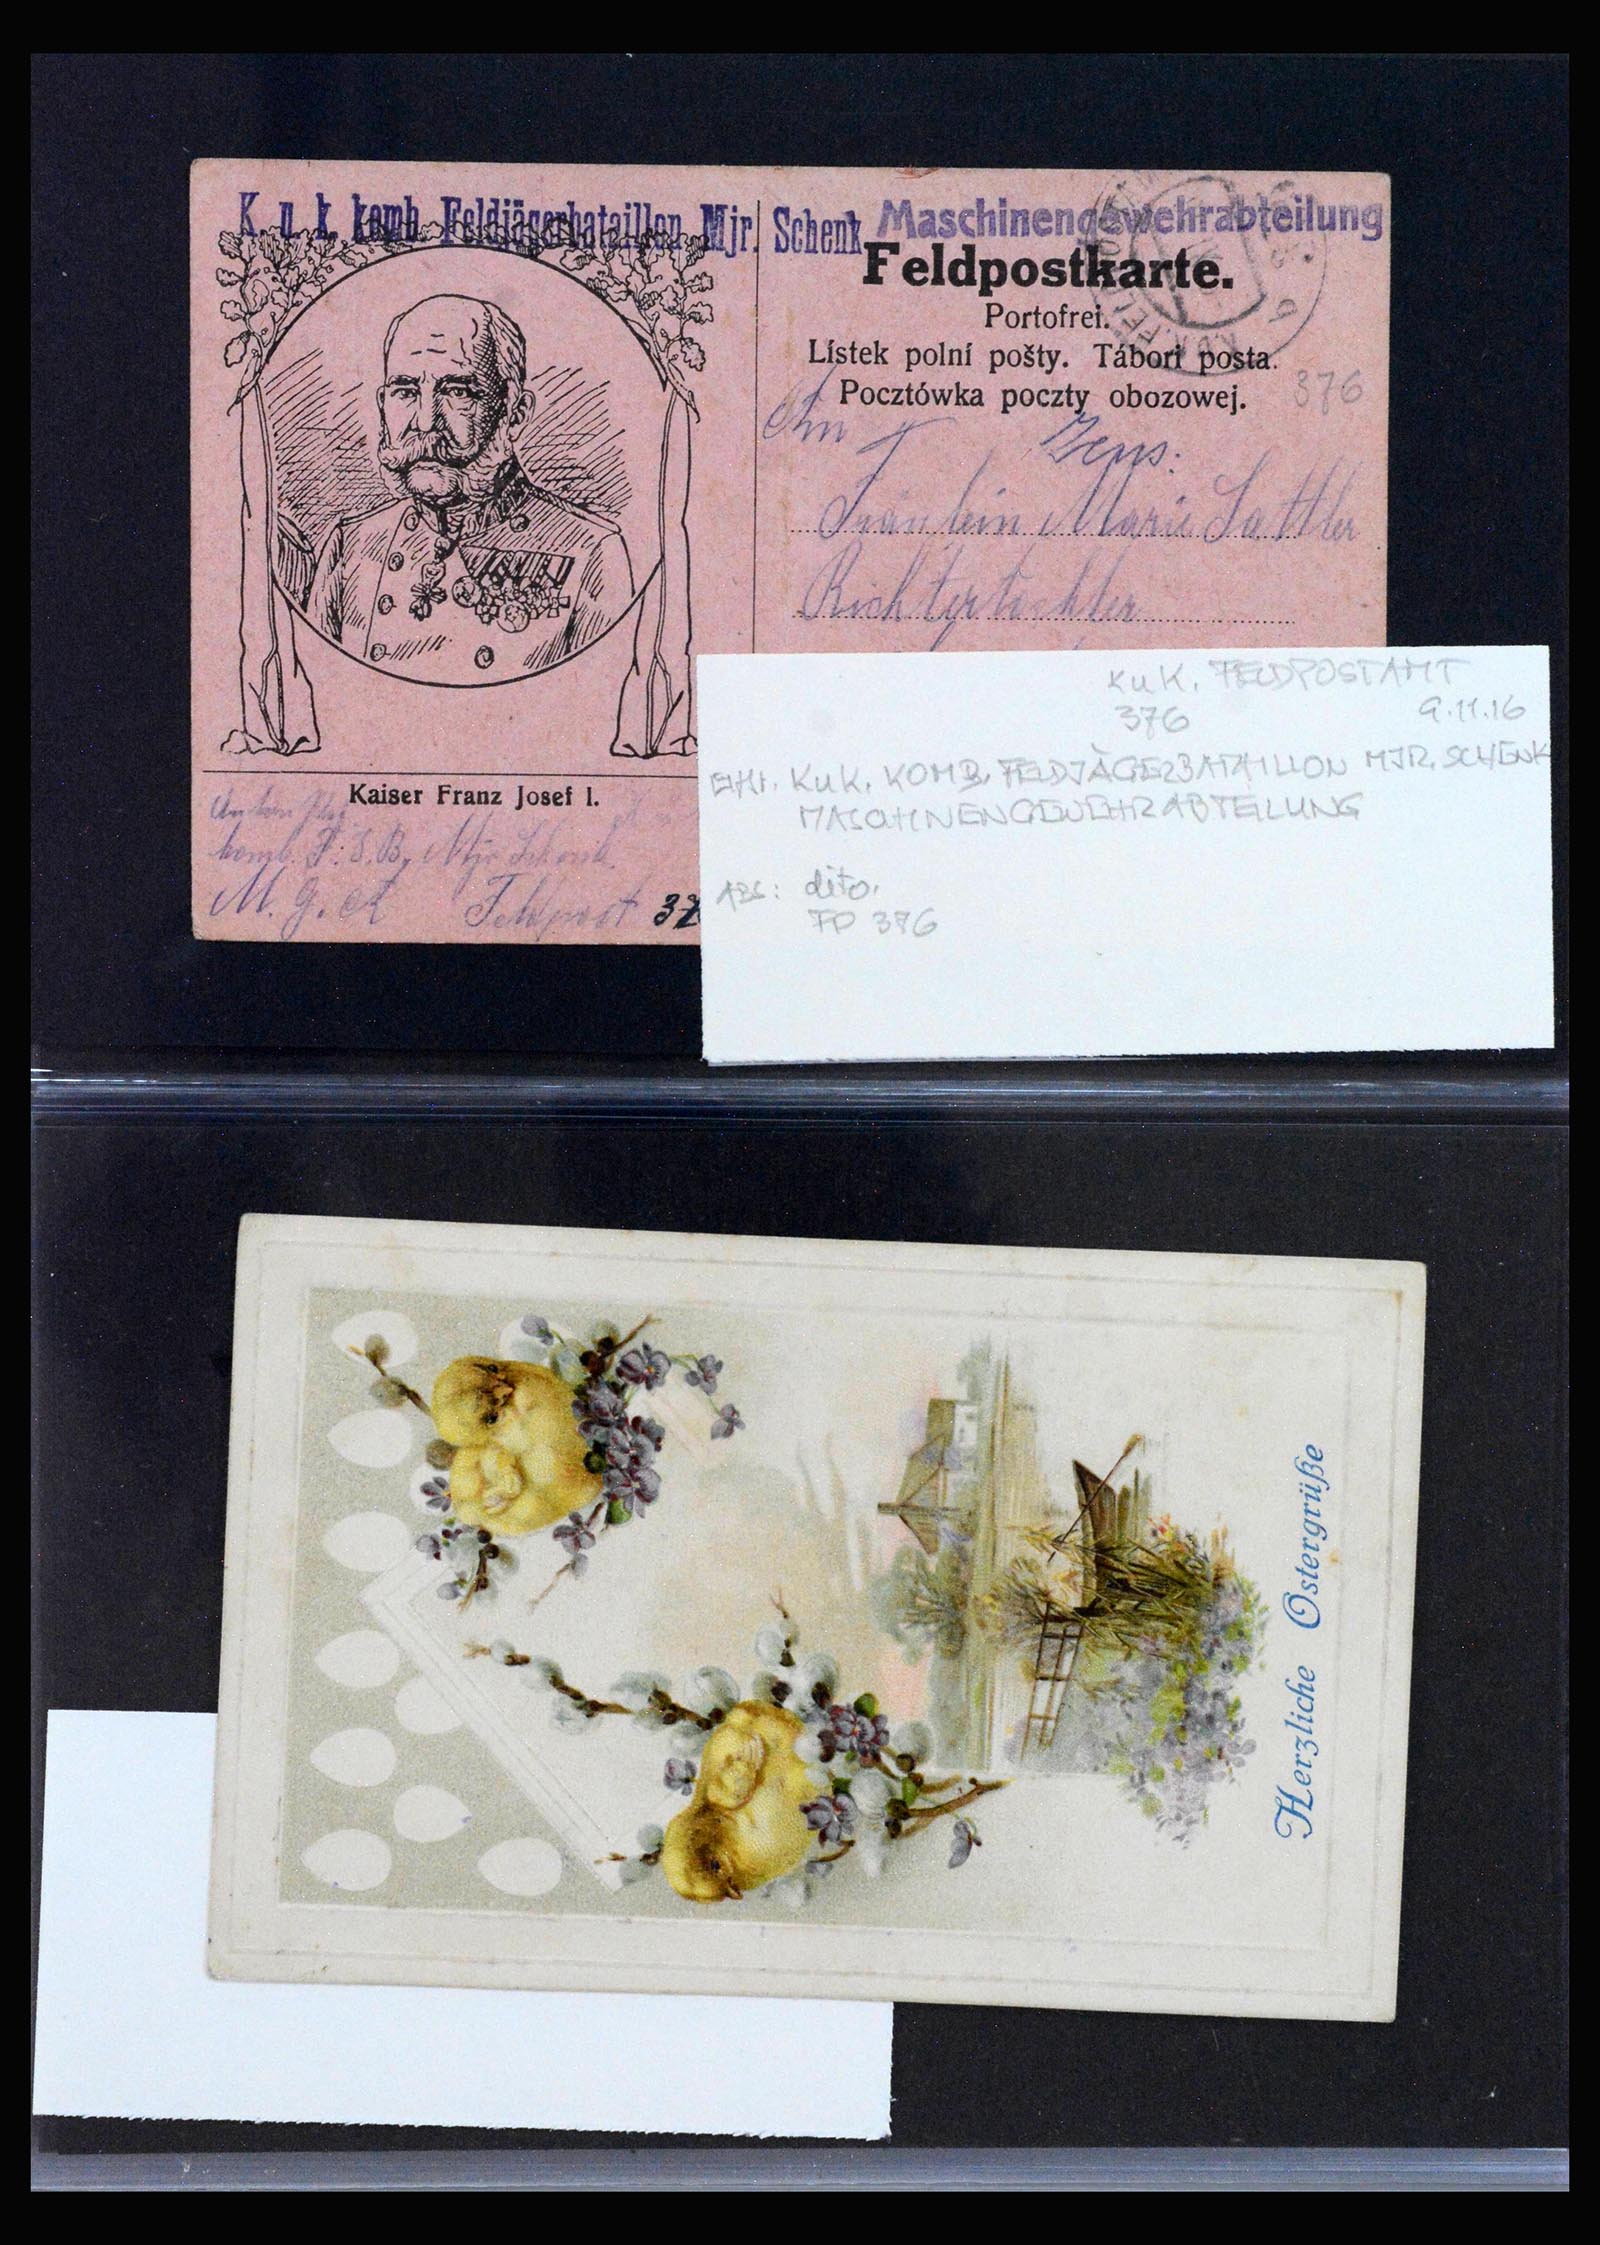 K. u. k. komb. Feldjägerbataillon Mjr. Schenk Maschinengewehrabteilung
Feldpostkarte.
Portofrei.
Lístek polní pošty. Tábori posta.
Pocztówka poczty obozowej.
376
An
Fräulein Marie Sattler
Richtertochter
Kaiser Franz Josef I.
Anton
komb. F. J. B. Mjr Schenk
M. G. A. Feldpost 37
K u K. FELDPOSTAMT
376 9.11.16
K u K. KOMB. FELDJÄGERBATAILLON MJR. SCHENK
MASCHINENGEWEHRABTEILUNG
ABS: dito.
FP 376
Herzliche Ostergrüße